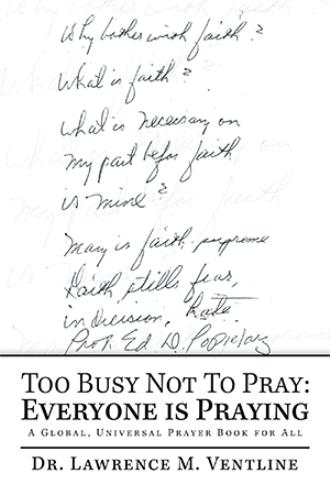 Why bother with faith?
What is faith?
What is necessary on
my part befor faith
is mine?
Mary is faith supreme
Faith stills fear,
indecision, hate.
Prof. Ed D. Popielarz
TOO BUSY NOT TO PRAY:
EVERYONE IS PRAYING
A GLOBAL, UNIVERSAL PRAYER BOOK FOR ALL
DR. LAWRENCE M. VENTLINE